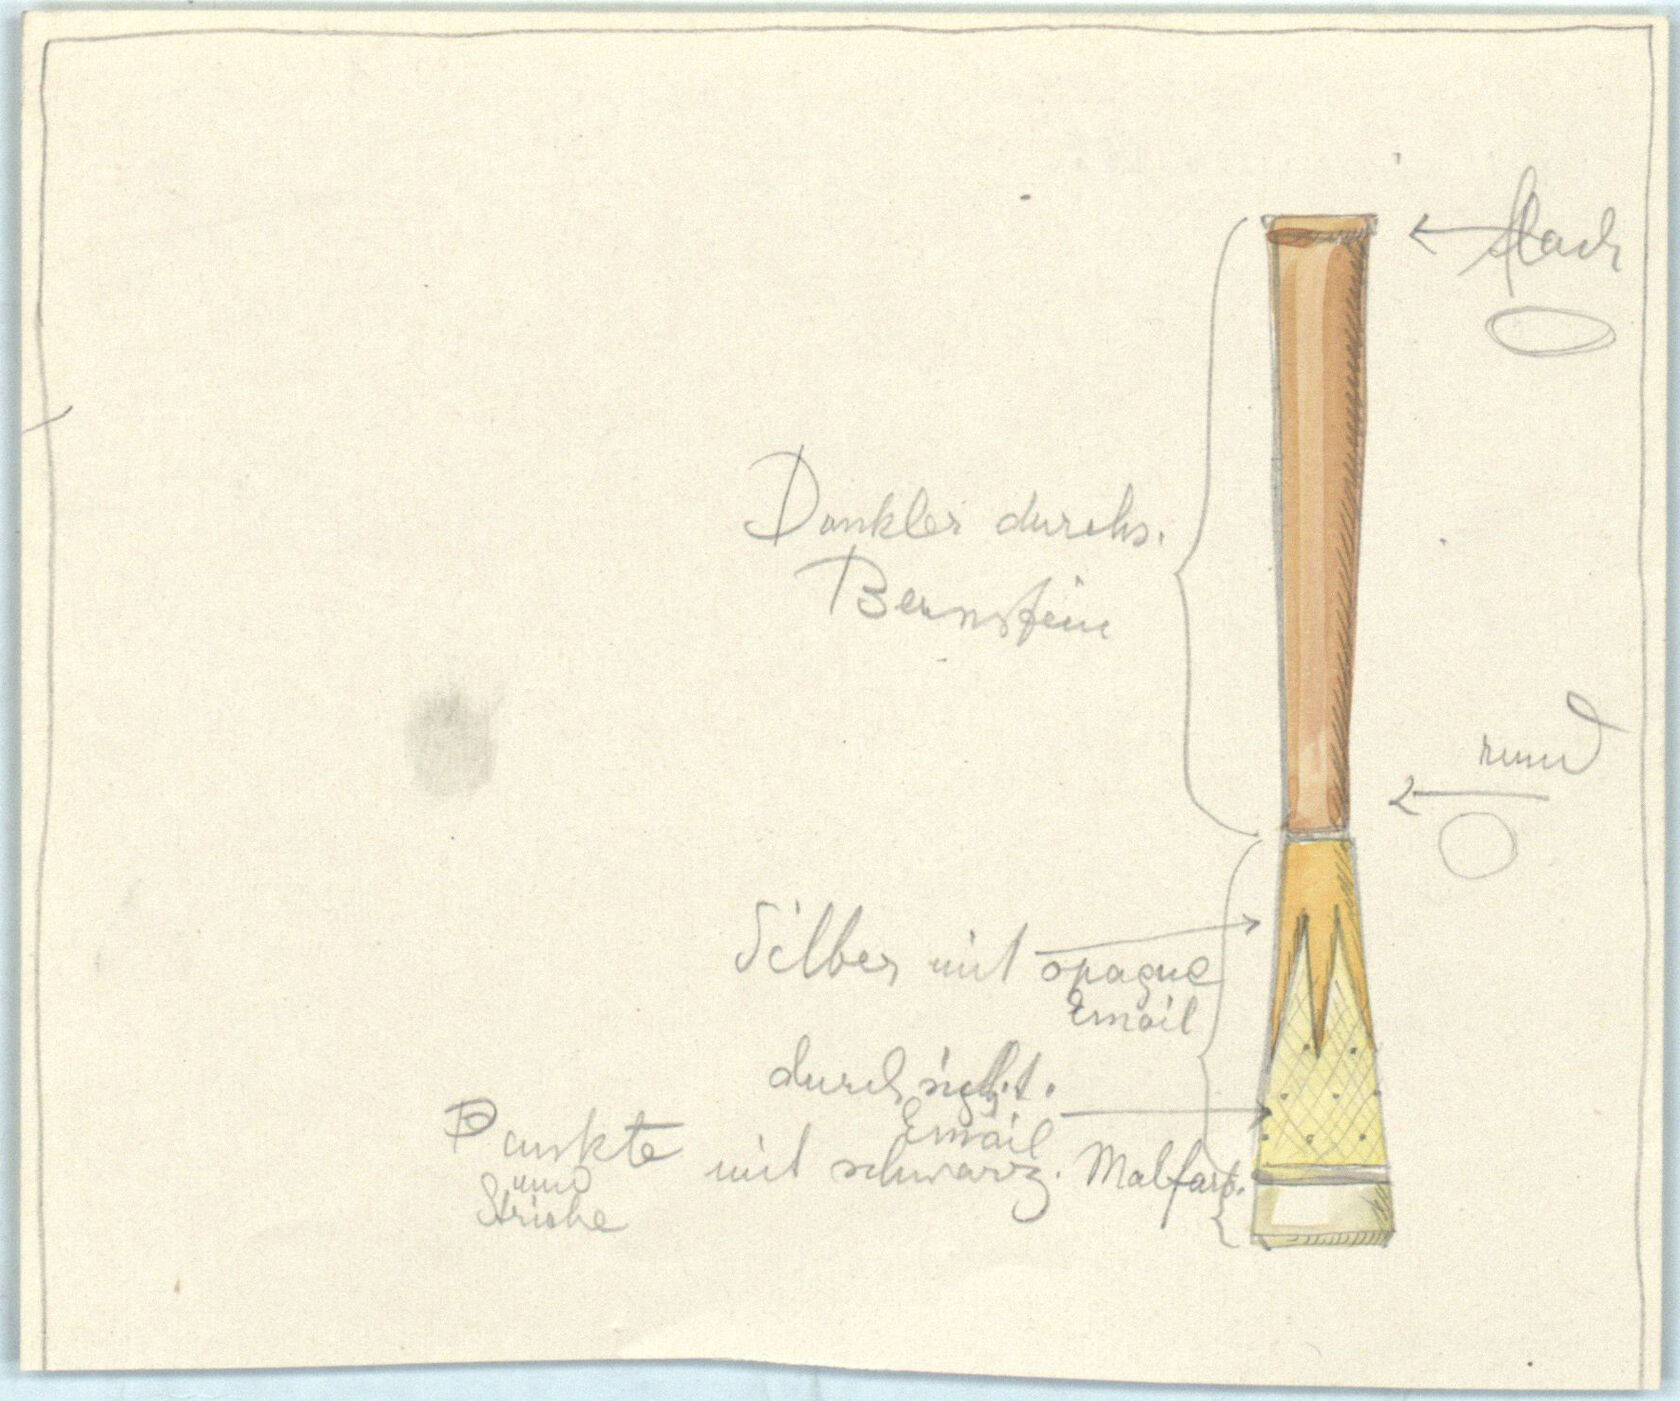 flach
Dunkler durchs.
Bernstein
rund
Silber mit opaque
Email
durchsicht.
Email
Punkte mit schwarz. Malfarb.
und
Striche